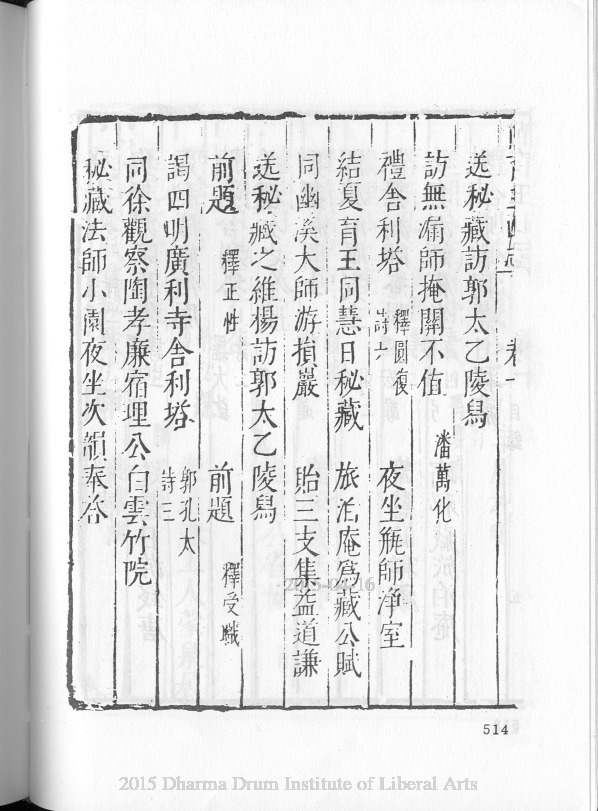 送秘藏訪郭太乙陵舄
訪無漏師掩關不值 潘萬化
禮舍利塔 釋圓復 詩六 夜坐瓶師淨室
結夏育王同慧日秘藏 旅泊庵為藏公賦
同幽溪大師游損巖 貽三支集益道謙
送秘藏之維楊訪郭太乙陵舄
前題 釋正性 前題 釋受職
謁四明廣利寺舍利塔 郭孔太 詩三
同徐觀察陶孝廉宿理公白雲竹院
秘藏法師小園夜坐次韻奉答
514
2015 Dharma Drum Institute of Liberal Arts